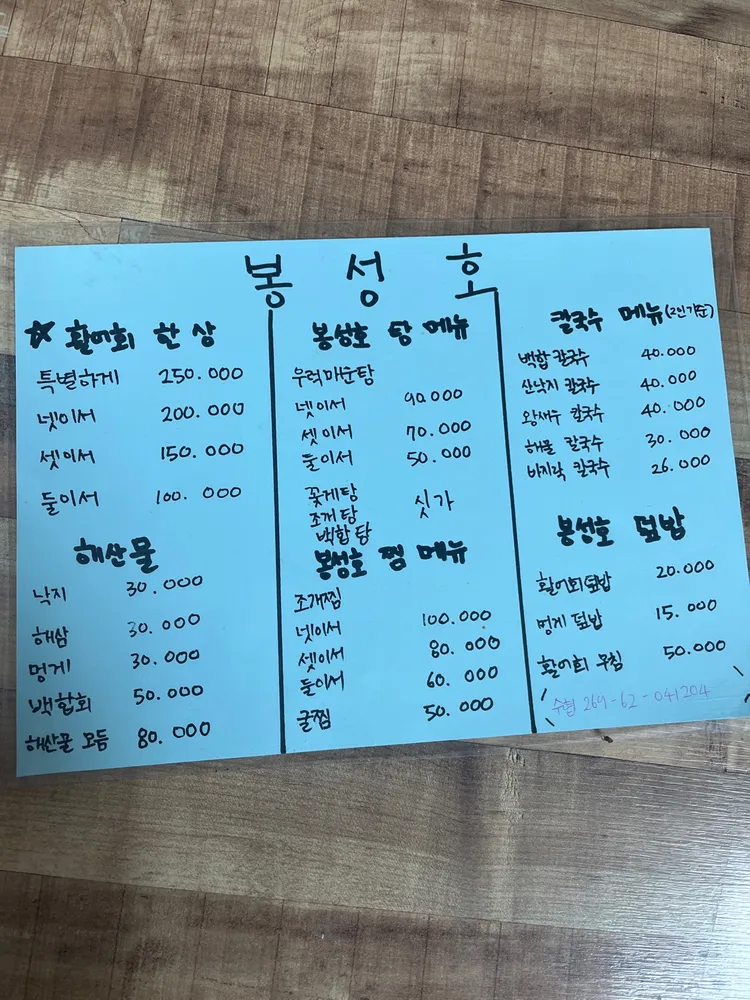 봉성호
☆ 활어회 한상
특별하게 250.000
넷이서 200.000
셋이서 150.000
둘이서 100.000
해산물
낙지 30.000
해삼 30.000
멍게 30.000
백합회 50.000
해산물 모듬 80.000
봉성호 탕 메뉴
우럭매운탕
넷이서 90.000
셋이서 70.000
둘이서 50.000
꽃게탕
조개탕 싯가
백합탕
봉성호 찜 메뉴
조개찜
넷이서 100.000
셋이서 80.000
둘이서 60.000
굴찜 50.000
칼국수 메뉴 (2인기준)
백합칼국수 40.000
산낙지 칼국수 40.000
왕새우 칼국수 40.000
해물 칼국수 30.000
바지락 칼국수 26.000
봉성호 덮밥
활어회덮밥 20.000
멍게 덮밥 15.000
활어회 무침 50.000
수협 269-62-041204